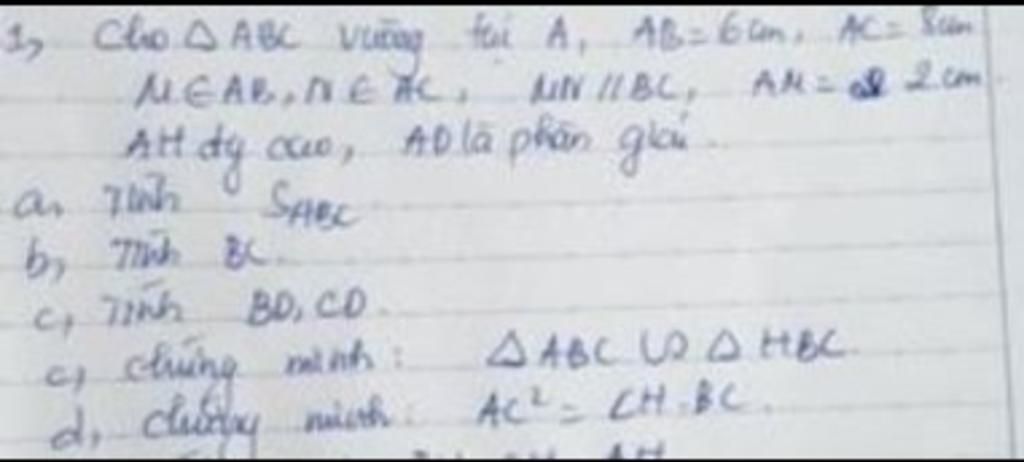 1, Cho △ ABC vuông tại A, AB = 6cm, AC = 8cm
M ∈ AB, N ∈ AC, MN // BC, AM = 2cm
AH đg cao, AD là phân giái
a, Tính SABC
b, Tính BC.
c, Tính BD, CD.
c, chứng minh: △ ABC ∽ △ HBC
d, chứng minh: AC² = CH.BC.